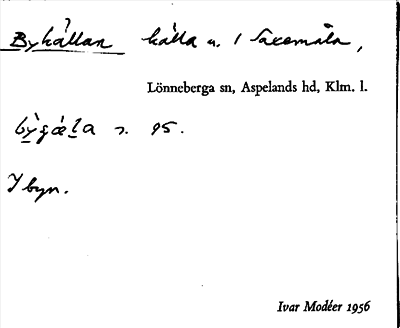 Byhällan källa n. 1 Saxemåla,
Lönneberga sn, Aspelands hd, Klm. l.
s. 95.
I byn.
Ivar Modéer 1956